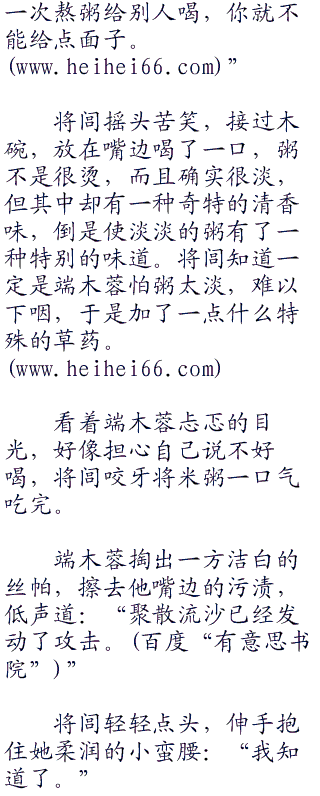 一次熬粥给别人喝，你就不
能给点面子。
(www.heihei66.com)”
将闾摇头苦笑，接过木
碗，放在嘴边喝了一口，粥
不是很烫，而且确实很淡，
但其中却有一种奇特的清香
味，倒是使淡淡的粥有了一
种特别的味道。将闾知道一
定是端木蓉怕粥太淡，难以
下咽，于是加了一点什么特
殊的草药。
(www.heihei66.com)
看着端木蓉忐忑的目
光，好像担心自己说不好
喝，将闾咬牙将米粥一口气
吃完。
端木蓉掏出一方洁白的
丝帕，擦去他嘴边的污渍，
低声道：“聚散流沙已经发
动了攻击。(百度“有意思书
院”)”
将闾轻轻点头，伸手抱
住她柔润的小蛮腰：“我知
道了。”